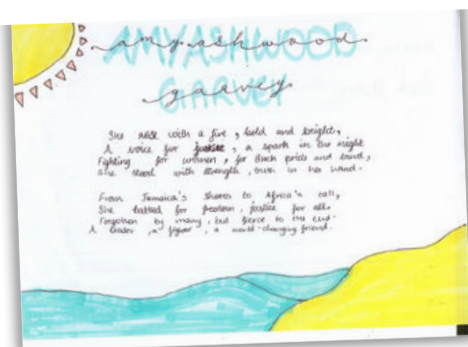 AMY ASHWOOD
amy ashwood
GARVEY
garvey
She rose with a fire, bold and bright,
A voice for justice, a spark in the night
Fighting for women, for Black pride and
She stood with strength, in her hand.
From Jamaica's shores to Africa's call,
She battled for freedom, justice for all.
Forgotten by many, but fierce to the end.
A leader, a fighter, a world-changing friend.